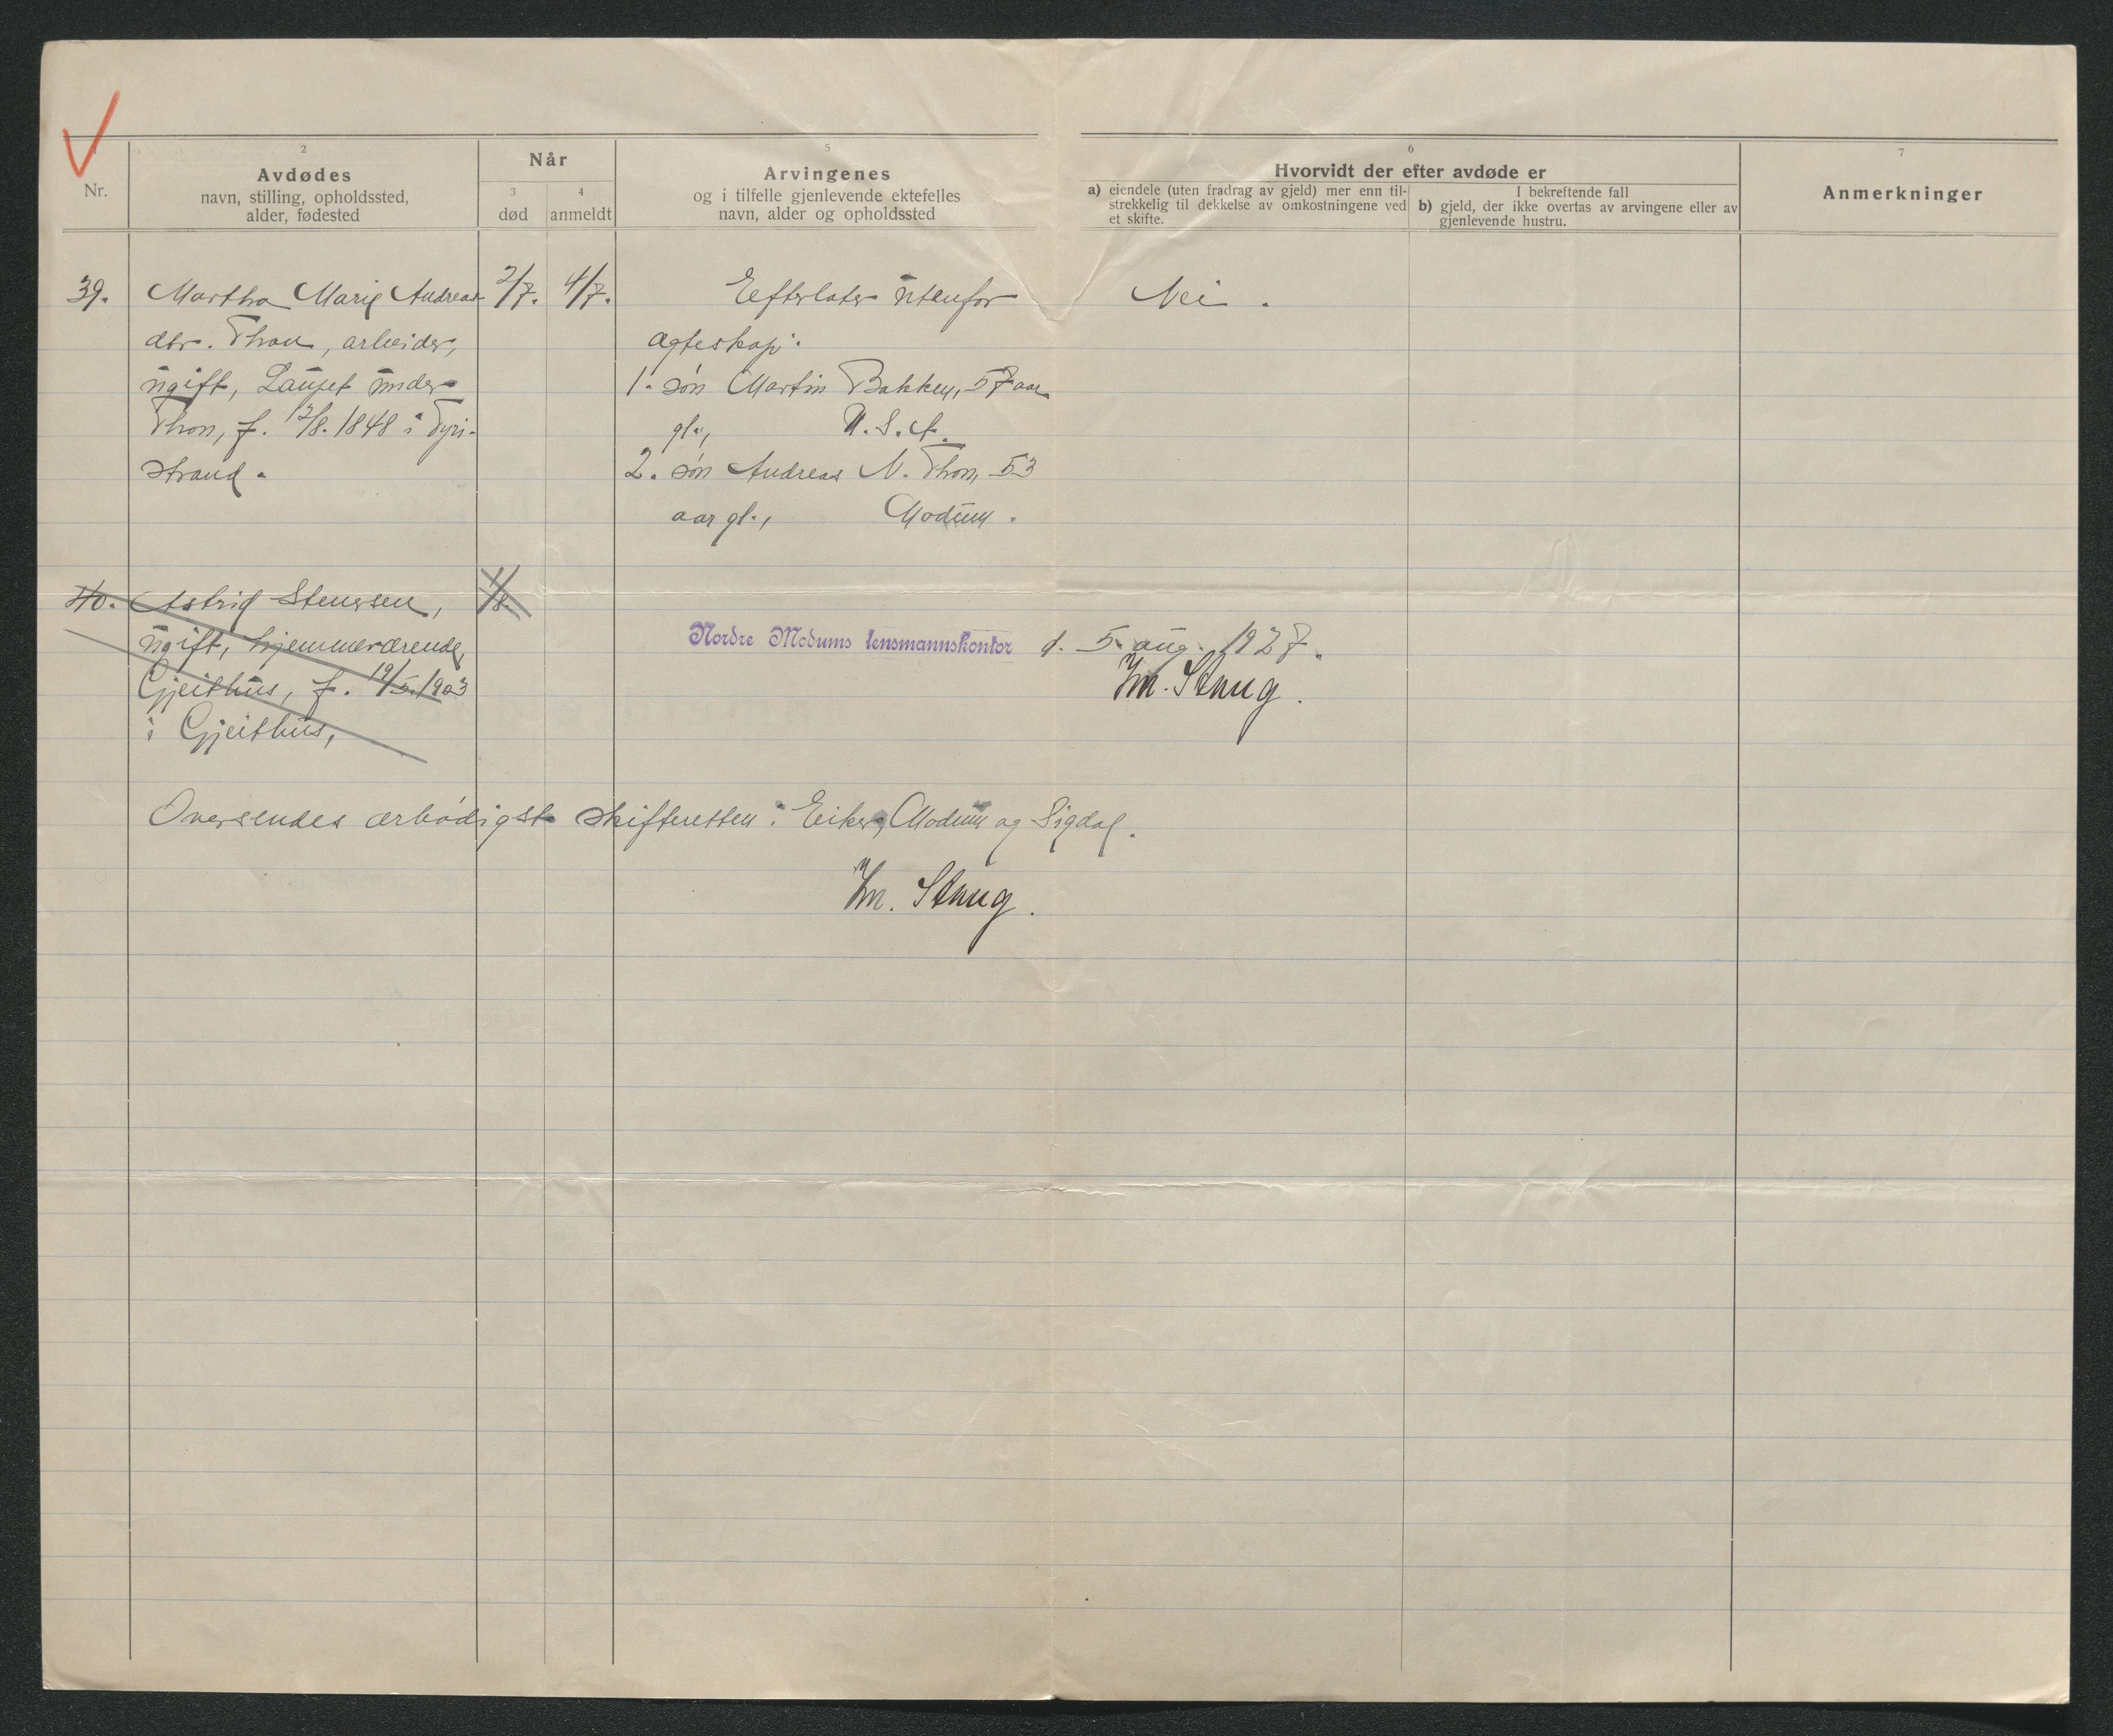 1 2 3 4 5 6 7
Nr.
Avdødes
navn, stilling, opholdssted,
alder, fødested
Når
død
anmeldt
Arvingenes
og i tilfelle gjenlevende ektefelles
navn, alder og opholdssted
Hvorvidt der efter avdøde er
a) eiendele (uten fradrag av gjeld) mer enn til-
strekkelig til dekkelse av omkostningene ved
et skifte.
I bekreftende fall
b) gjeld, der ikke overtas av arvingene eller av
gjenlevende hustru.
Anmerkninger
39. Martha Marie Andreas-
dtr. Thon, arbeider,
ugift, under
Thon, f. 12/8. 1848 i Tyri-
strand.
2/7. 4/7.
Eefterlater utenfor
ægteskap:
1. søn Martin Bakken, 57 aar
gl., U.S.A.
2. søn Andreas N. Thon, 53
aar gl., Modum.
Nei.
40. Astrid Stenersen, 1/8.
ugift, hjemmeværende,
Gjeithus, f. 19/5. 1903
i Gjeithus,
Nordre Modums lensmannskontor d. 5. aug. 1927.
Im. Staug.
Oversendes ærbødigst skifteretten i Eiker, Modum og Sigdal.
Im. Staug.